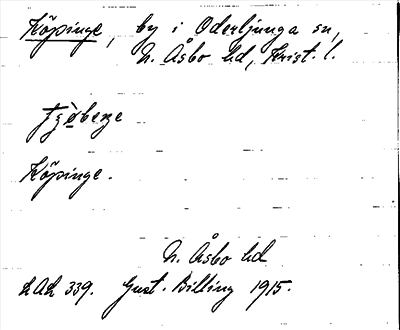 Köpinge, by i Oderljunga sn,
N. Åsbo hd, Krist. l.
Köpinge.
N. Åsbo hd
LAL 339. Gust. Billing 1915.